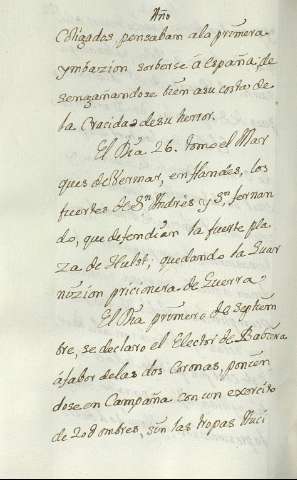 Año
Coligados, pensaban a la primera
ymbazion sorberse á España, de
sengañandose bien a su costa de
la Cracidad de su horror.
El Dia 26. tomo el Mar
ques de Vermar, en flandes, los
fuertes de Sn Andrés y Sn fernan
do, que defendian la fuerte pla
za de Hulst, quedando la Guar
nizion pricionera de Guerra.
El Dia primero de Septiem
bre, se declaro el Elector de Babiera
á fabor de las dos Coronas, ponien
dose en Campaña con un exercito
de 20 ombres, sin las tropas Auci